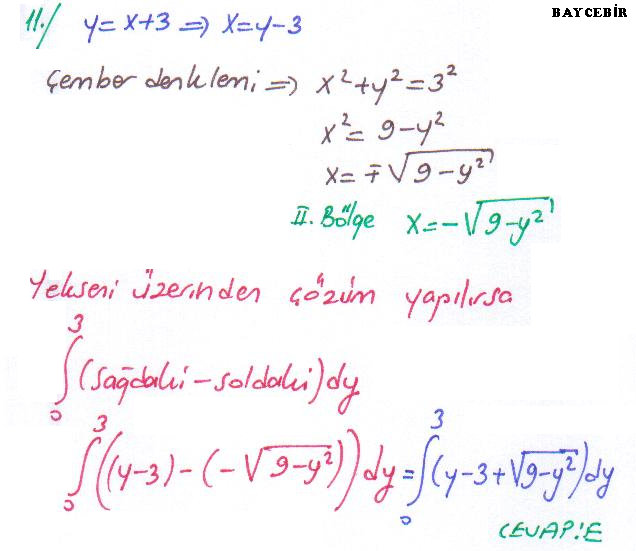 BAYCEBİR
11./ y = x+3 ⇒ x = y-3
Çember denklemi ⇒ x² + y² = 3²
x² = 9 - y²
x = ∓√(9-y²)
II. Bölge x = -√(9-y²)
Yekseni üzerinden çözüm yapılırsa
∫₀³ (sağdaki - soldaki) dy
∫₀³ ((y-3) - (-√(9-y²))) dy = ∫₀³ (y-3+√(9-y²)) dy
CEVAP:E